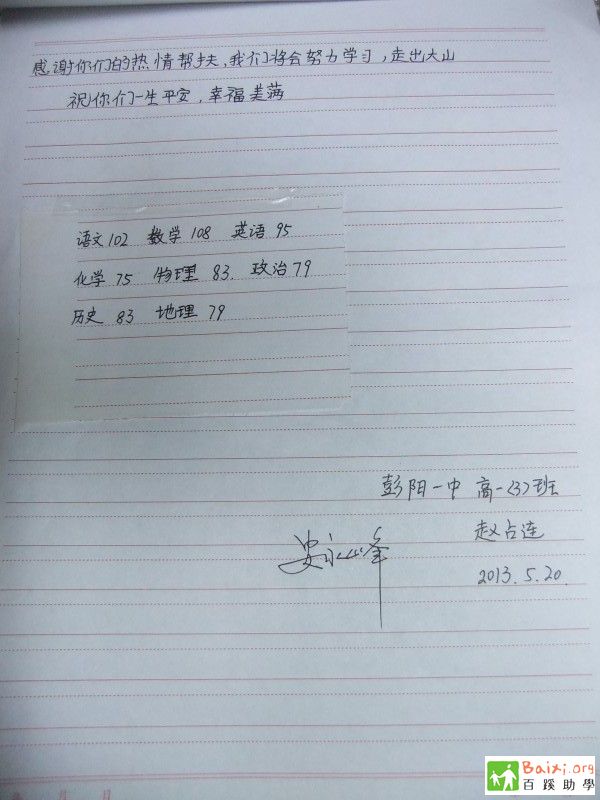 感谢你们的热情帮扶,我们将会努力学习,走出大山
祝你们一生平安,幸福美满
语文102 数学108 英语95
化学75 物理83. 政治79
历史83 地理79
彭阳一中 高一(3)班
赵占连
2013.5.20.
年 月 日
Baixi.org
百蹊助學